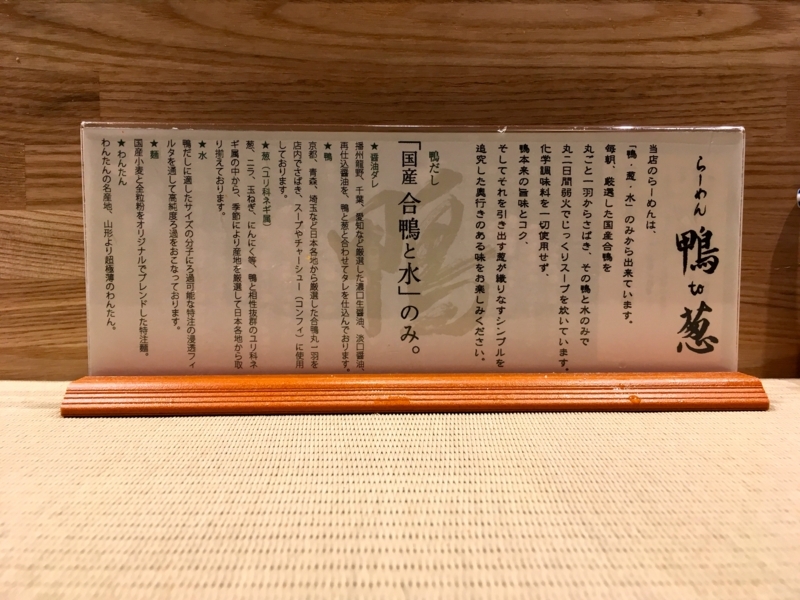 らーめん 鴨to葱
当店のらーめんは、
「鴨・葱・水」のみから出来ています。
毎朝、厳選した国産合鴨を
丸ごと一羽からさばき、その鴨と水のみで
丸二日間弱火でじっくりスープを炊いています。
化学調味料を一切使用せず、
鴨本来の旨味とコク、
そしてそれを引き出す葱が織りなすシンプルを
追究した奥行きのある味をお楽しみください。
鴨だし
「国産 合鴨と水」のみ。
鴨
★醤油ダレ
播州龍野、千葉、愛知など厳選した濃口生醤油、淡口醤油、
再仕込醤油を、鴨と葱と合わせてタレを仕込んでおります。
★鴨
京都、青森、埼玉など日本各地から厳選した合鴨丸一羽を
店内でさばき、スープやチャーシュー（コンフィ）に使用
しております。
★葱（ユリ科ネギ属）
葱、ニラ、玉ねぎ、にんにく等、鴨と相性抜群のユリ科ネ
ギ属の中から、季節により産地を厳選して日本各地から取
り揃えております。
★水
鴨だしに適したサイズの分子にろ過可能な特注の浸透フィ
ルタを通して高純度ろ過をおこなっております。
★麺
国産小麦と全粒粉をオリジナルでブレンドした特注麺。
★わんたん
わんたんの名産地、山形より超極薄のわんたん。